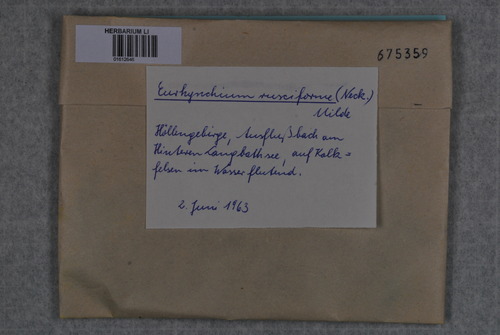 HERBARIUM LI
675359
Eurhynchium rusciforme (Neck.)
Milde
Höllengebirge, Ausflußbach am
Hinteren Langbathsee, auf Kalk=
felsen im Wasser flutend.
2. Juni 1963